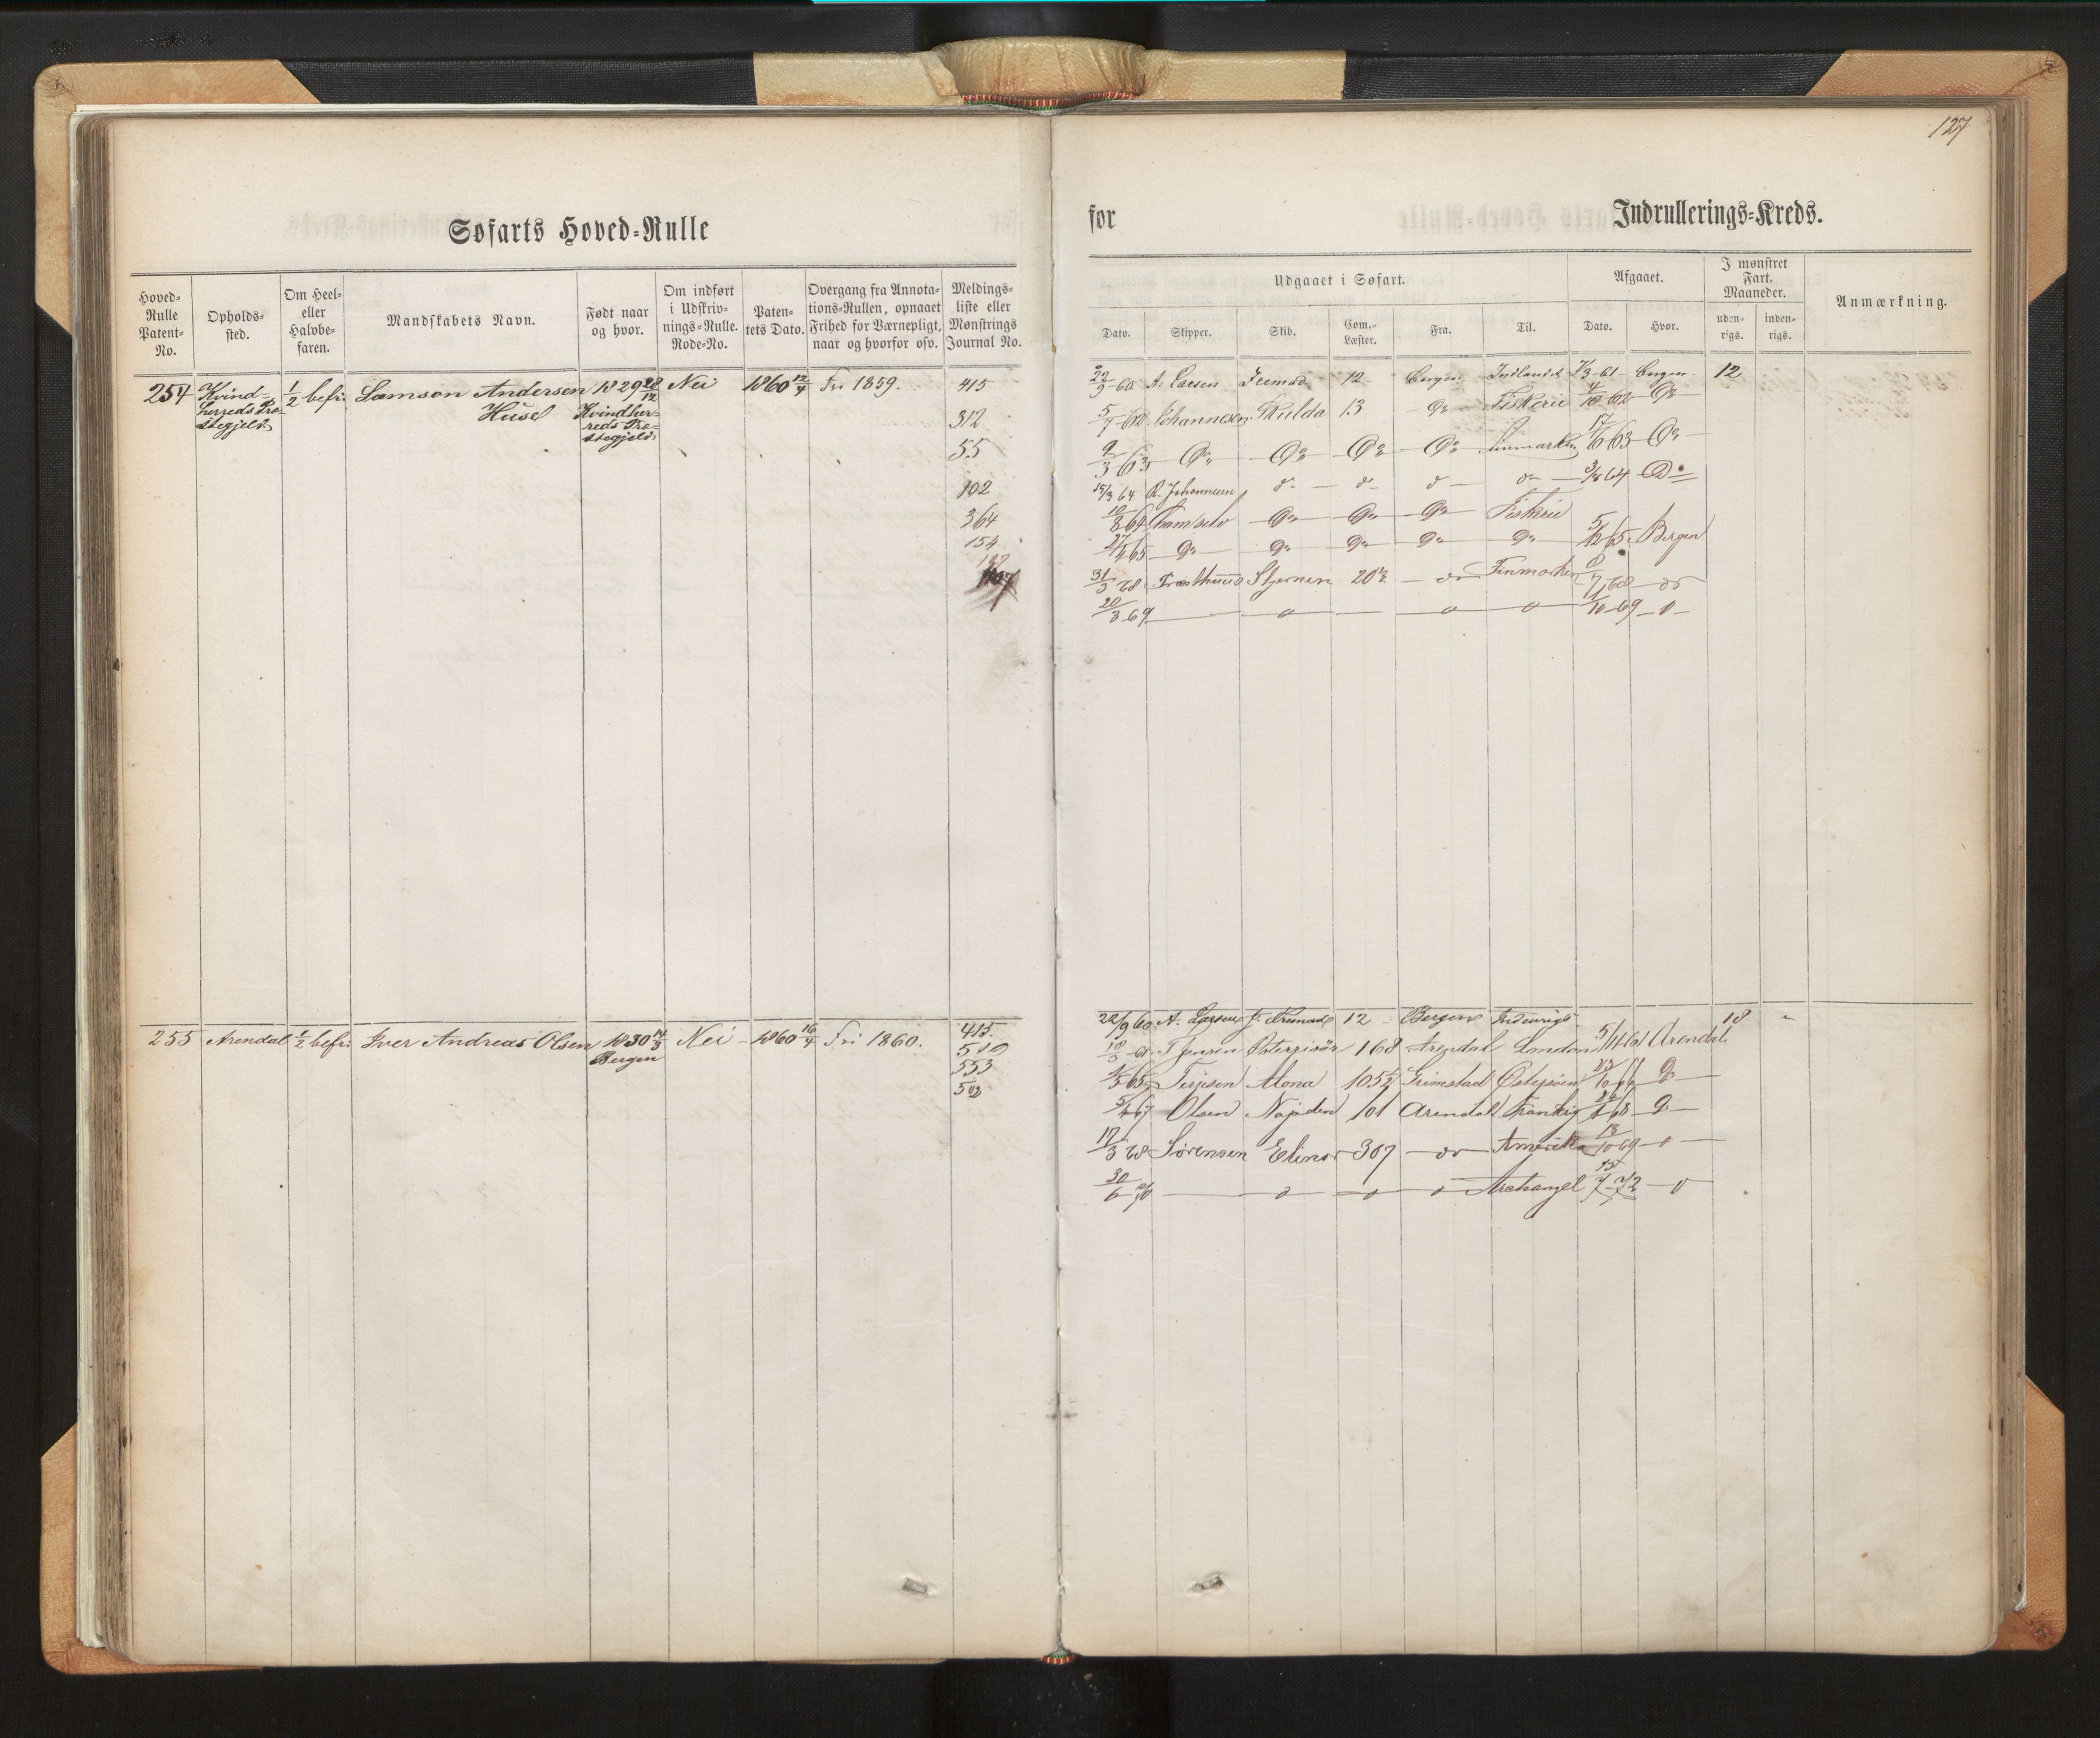 127
Søfarts Hoved-Rulle
for
Indrullerings-Kreds.
Hoved-Rulle Patent-No.
Opholds-sted.
Om Heel- eller Halvbe-faren.
Mandskabets Navn.
Født naar og hvor.
Om indført i Udskriv-nings-Rulle. Rode-No.
Paten-tets Dato.
Overgang fra Annota-tions-Rullen, opnaaet Frihed for Værnepligt, naar og hvorfor osv.
Meldings-liste eller Mønstrings Journal No.
Udgaaet i Søfart.
Afgaaet.
I mønstret Fart. Maaneder.
Anmærkning.
Dato.
Skipper.
Skib.
Com.-Læster.
Fra.
Til.
Dato.
Hvor.
uden-rigs.
inden-rigs.
254 Kvind- 1/2 befr. Samson Andersen 1829 28/12 Nei 1860 12/4 Fri 1859. 415
herreds Præ- Husel Kvindher- 312
stegjeld reds Præ- 55
stegjeld
102
364
154
22/9 60 A. Larsen Fremad 12 Bergen Indlandet 1/3 61 Bergen 12
5/7 62 Johannesen Skulda 13 Do Fiskerie 4/10 62 Do
9/3 63 Do Do Do Do Finmarken 17/6 63 Do
15/3 64 R. Johannesen do do do do 3/8 64 Do
10/8 64 Do Do Do Fiskerie
27/4 65 Do Do Do Do Do 5/12 65 Bergen
31/3 68 Stjernen 20 1/2 do Finmarken 8/7 68 do
20/3 69 1/10 69
255 Arendal 1/2 befr. Iver Andreas Olsen 1830 14/3 Nei 1860 16/4 Fri 1860. 415
Bergen 510
553
22/9 60 A. Larsen Fremad 12 Bergen Indenrigs 18
18/3 61 T Jensen Østerrisør 168 Arendal London 5/11 61 Arendal
1/5 65 Terjesen Alona 105 1/2 Grimstad Østersøen 23/10 66 Do
5/4 67 Olsen Najaden 101 Arendal Frankrig Do
17/3 68 Sørensen Elinor 307 do Amerika 18/10 69
30/6 70 Archangel 15/7 72